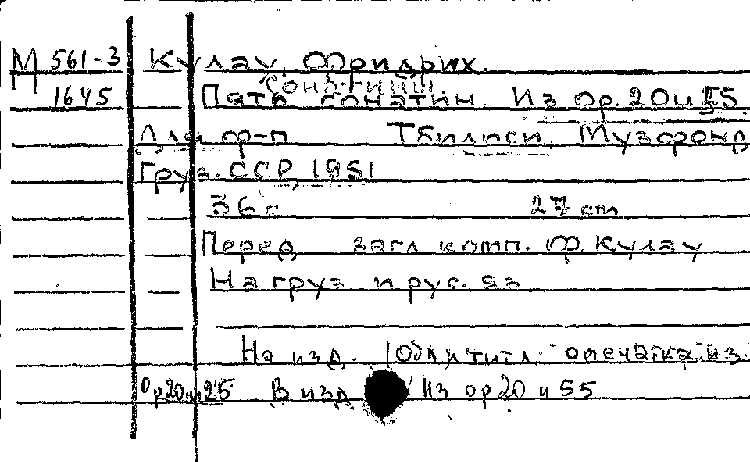 М 561-3 Кулау, Фридрих.
Сонатины
1645 Пять сонатин. Из ор. 20 и 55.
Для ф-п Тбилиси, Музфонд
Груз. ССР, 1951
36 с. 27 cm
Перед загл. комп. Ф. Кулау
На груз. и рус. яз
На изд. опечатка: из
ор 20 и 25 В изд Из ор 20 и 55